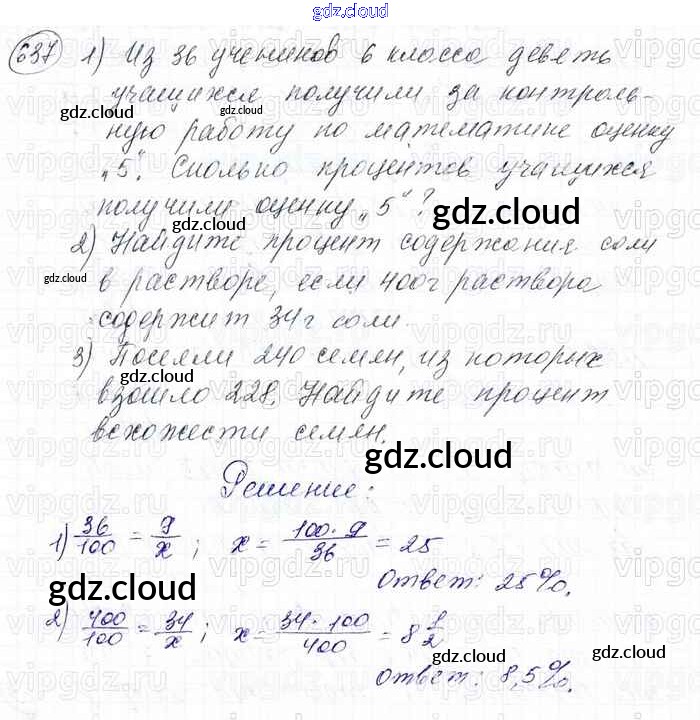 gdz.cloud
637 1) Из 36 учеников 6 класса девять
учащихся получили за контроль-
ную работу по математике оценку
„5“. Сколько процентов учащихся
получили оценку „5“?
2) Найдите процент содержания соли
в растворе, если 400г раствора
содержит 34г соли.
3) Посеяли 240 семян, из которых
взошло 228. Найдите процент
всхожести семян.
Решение:
1) 36/100 = 9/x ; x = 100·9/36 = 25
Ответ: 25%.
2) 400/100 = 34/x ; x = 34·100/400 = 8 1/2
Ответ: 8,5%.